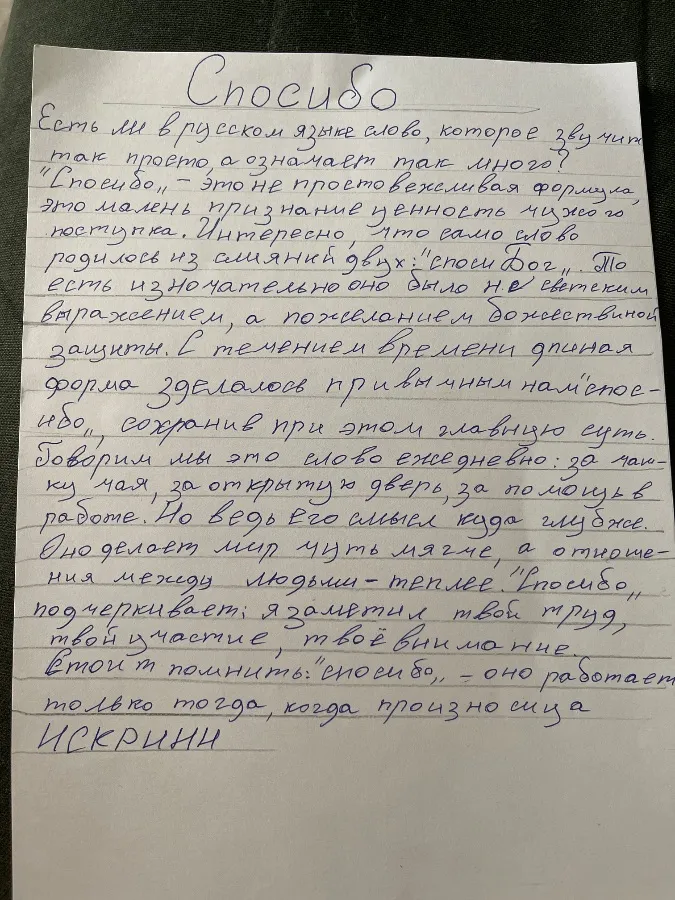 Спосибо
Есть ли в русском языке слово, которое звучит
так просто, а означает так много?
"Спосибо„ – это не простовежливая формула,
это малень признание ценность чужого
поступка. Интересно, что само слово
родилось из слияний двух: "споси Бог„. То
есть изночательно оно было не светским
выражением, а пожеланием божествиной
защиты. С течением времени длиная
форма зделалось привычным нам "спос-
ибо„, сохранив при этом главную суть.
Говорим мы это слово ежедневно: за чаш-
ку чая, за открытую дверь, за помощь в
работе. Но ведь его смысл куда глубже.
Оно делает мир чуть мягче, а отноше-
ния между людьми – теплее. "Спосибо„
подчеркивает: я заметил твой труд,
твой участие, твоё внимание.
Стоит помнить: "спосибо„ – оно работает
только тогда, когда произносица
ИСКРИНН